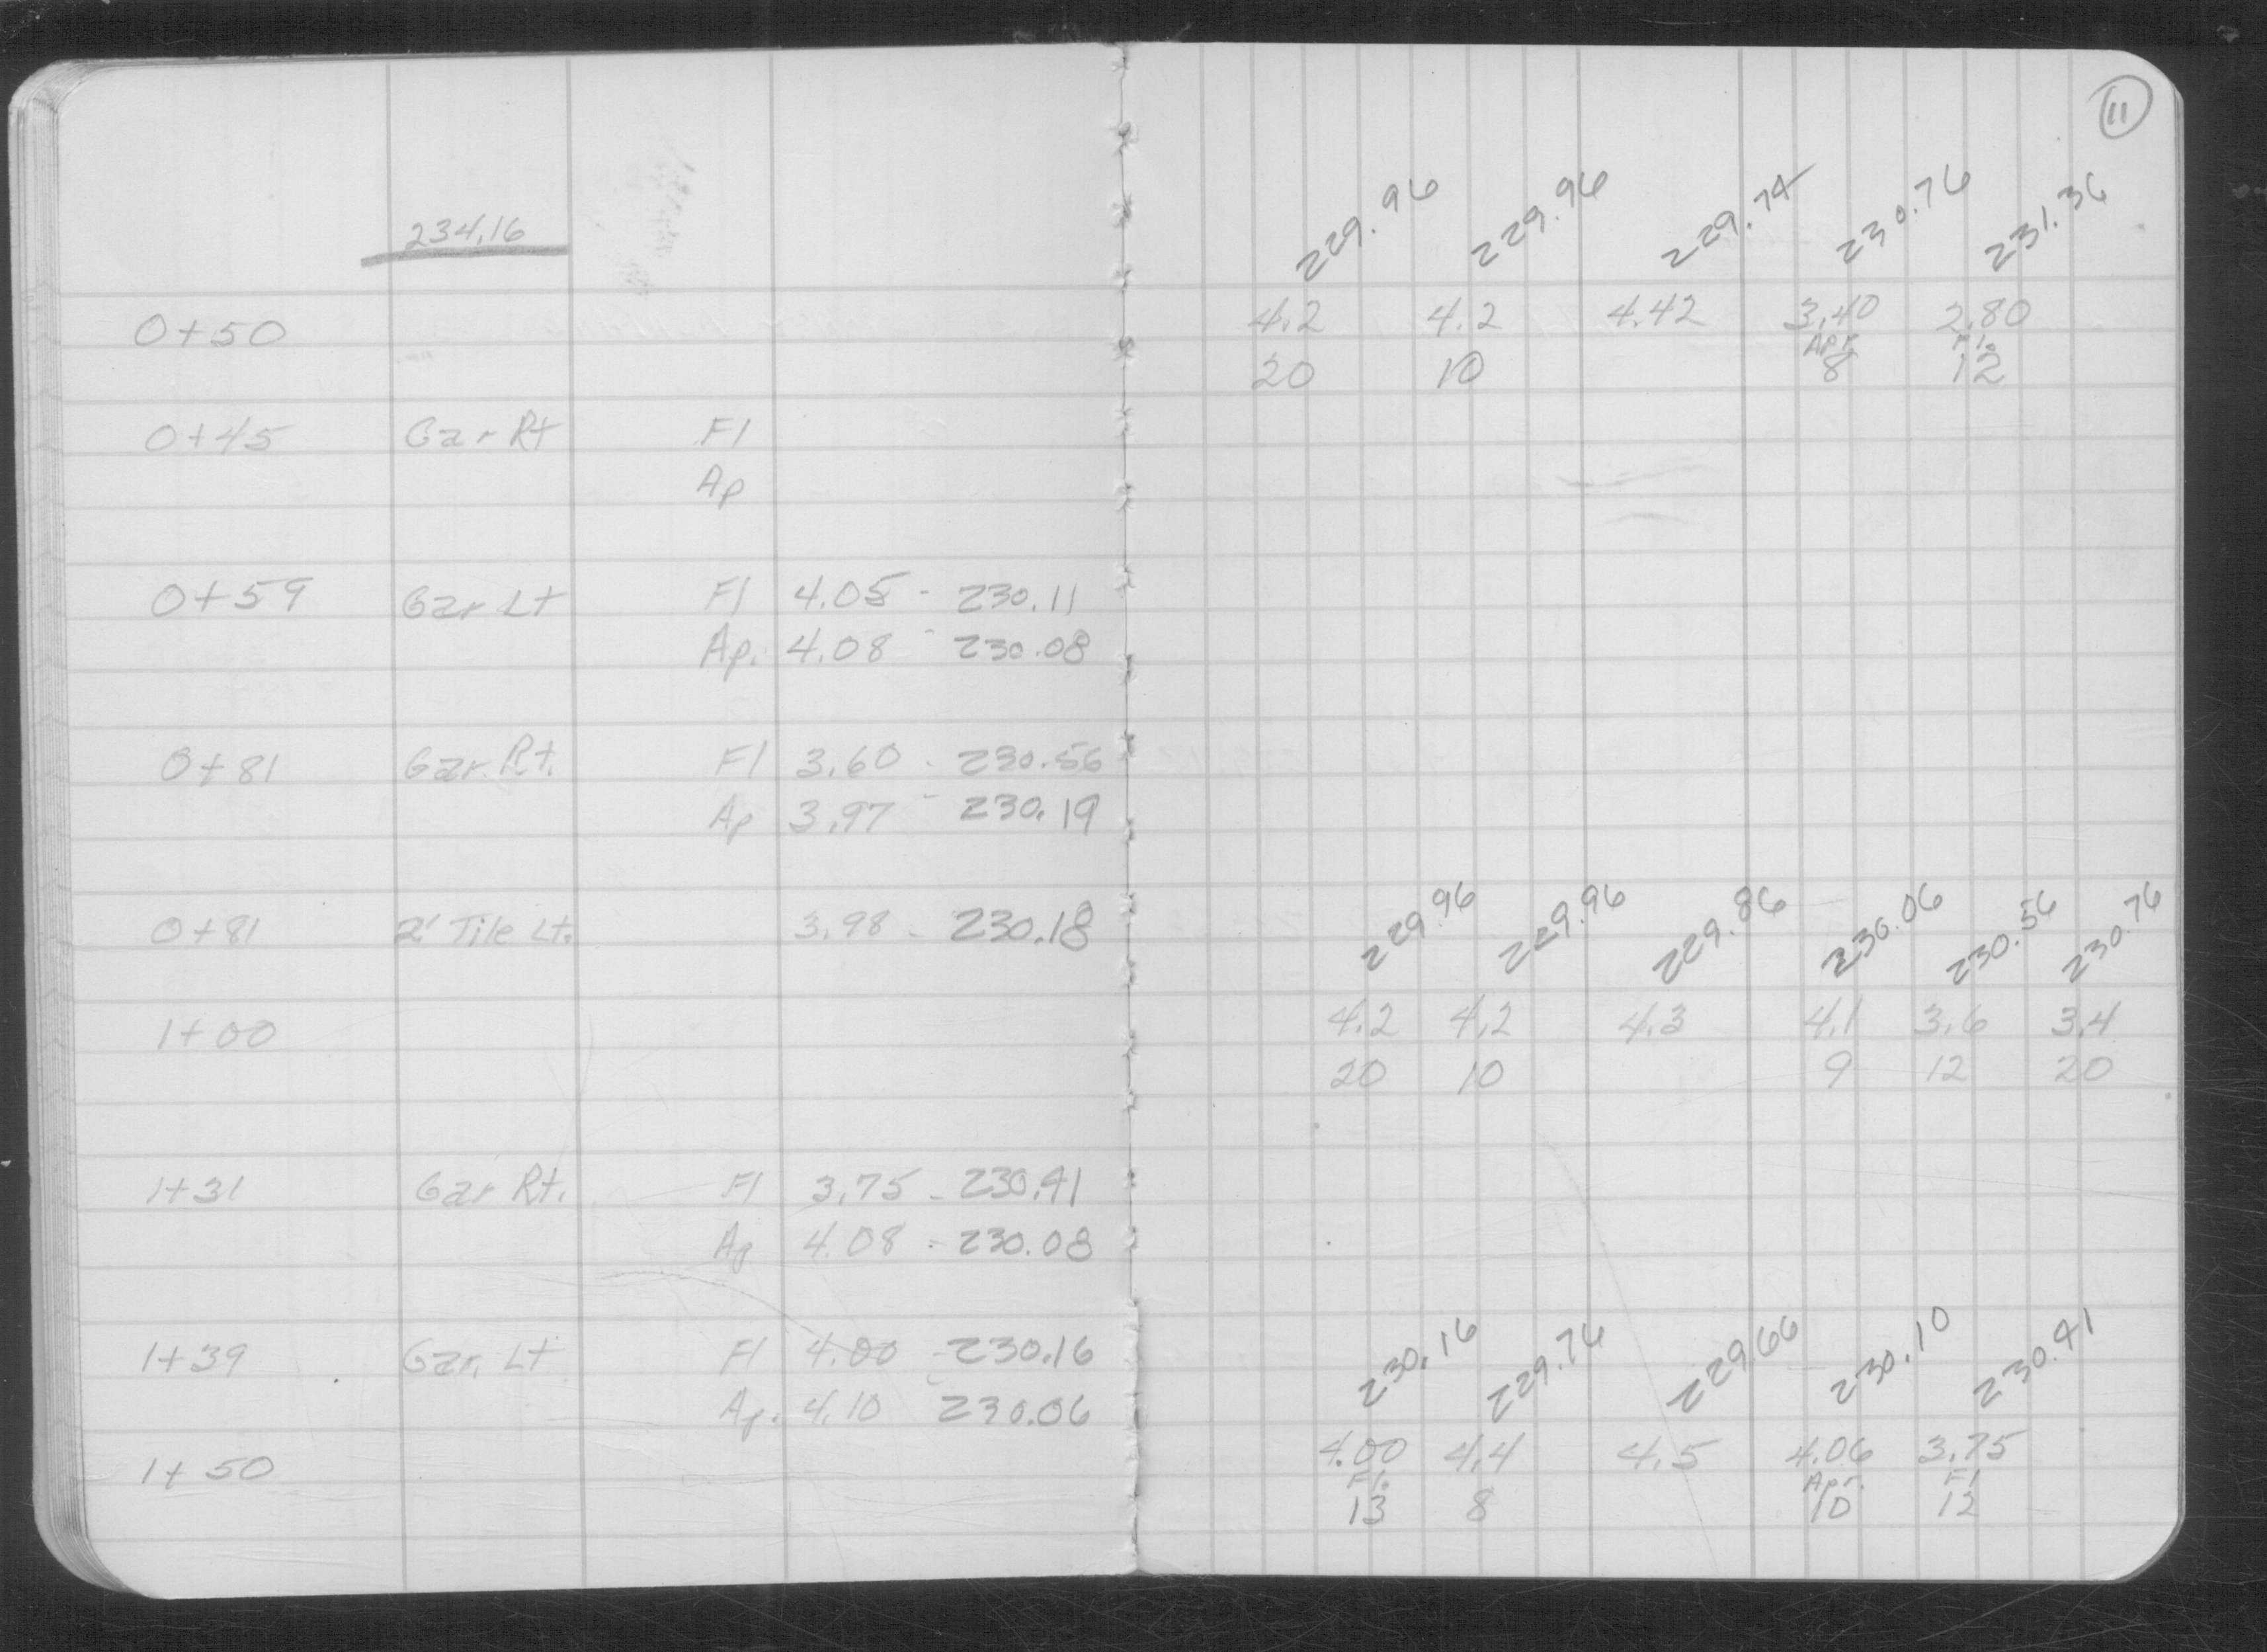 234.16
0+50
0+45 Gar Rt Fl
Ap
0+59 Gar Lt Fl 4.05 - 230.11
Ap. 4.08 - 230.08
0+81 Gar. Rt. Fl 3.60 - 230.56
Ap 3.97 - 230.19
0+81 2' Tile Lt. 3.98 - 230.18
1+00
1+31 Gar Rt. Fl 3.75 - 230.41
Ap 4.08 - 230.08
1+39 Gar. Lt Fl 4.00 - 230.16
Ap. 4.10 230.06
1+50
11
229.96 229.96 229.74 230.76 231.36
4.2 4.2 4.42 3.40 2.80
Apr. Fl.
20 10 8 12
229.96 229.96 229.86 230.06 230.56 230.76
4.2 4.2 4.3 4.1 3.6 3.4
20 10 9 12 20
230.16 229.76 229.66 230.10 230.41
4.00 4.4 4.5 4.06 3.75
Fl. Apr. Fl
13 8 10 12